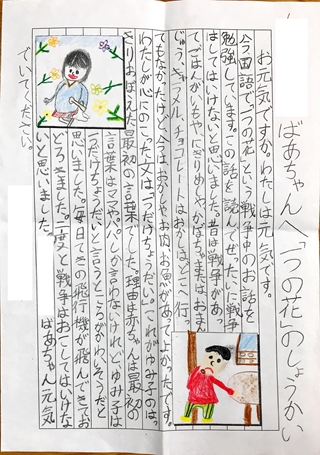 ばあちゃんへ「一つの花」のしょうかい
お元気ですか。わたしは元気です。
今国語で「一つの花」という戦争中のお話を
勉強しています。この話を読んでぜったいに戦争
はしてはいけないと思いました。昔は戦争があっ
て、ごはんがいもやにぎりめしやかぼちゃまたはおまん
じゅう、キャラメル、チョコレートはおかしはどこへ行っ
てもなかったけど、今はおかしやお肉お魚があってよかったです。
わたしが心にのこった文は一つだけちょうだい。これがゆみ子のはっ
きりおぼえた最初の言葉でした。理由は赤ちゃんは最初の
言葉はママやパパしか言わないけれどゆみ子は
一つだけちょうだいと言うところがかわいそうだと
思いました。毎日てきの飛行機が飛んできてお
どろきました。二度と戦争はおこしてはいけな
いと思いました。 ばあちゃん元気
でいてください。